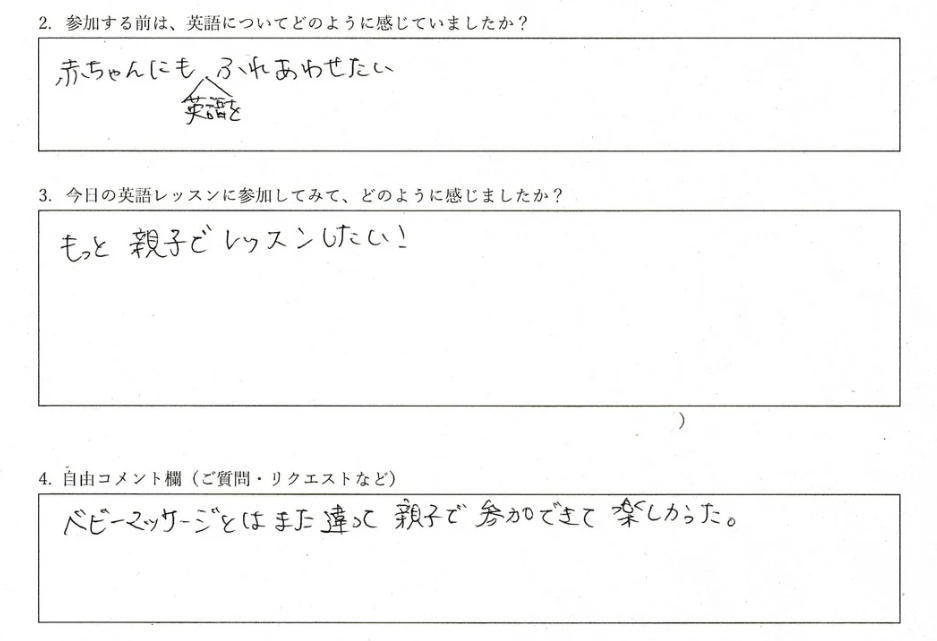 2. 参加する前は、英語についてどのように感じていましたか？
赤ちゃんにも ふれあわせたい
英語を
3. 今日の英語レッスンに参加してみて、どのように感じましたか？
もっと 親子で レッスンしたい！
）
4. 自由コメント欄（ご質問・リクエストなど）
ベビーマッサージとは また 違って 親子で 参加できて 楽しかった。